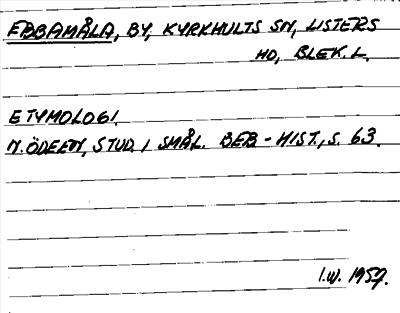 EBBAMÅLA, BY, KYRKHULTS SN, LISTERS
HD, BLEK. L.
ETYMOLOGI.
N. ÖDEEN, STUD. I SMÅL. BEB-HIST., S. 63.
I.W. 1959.